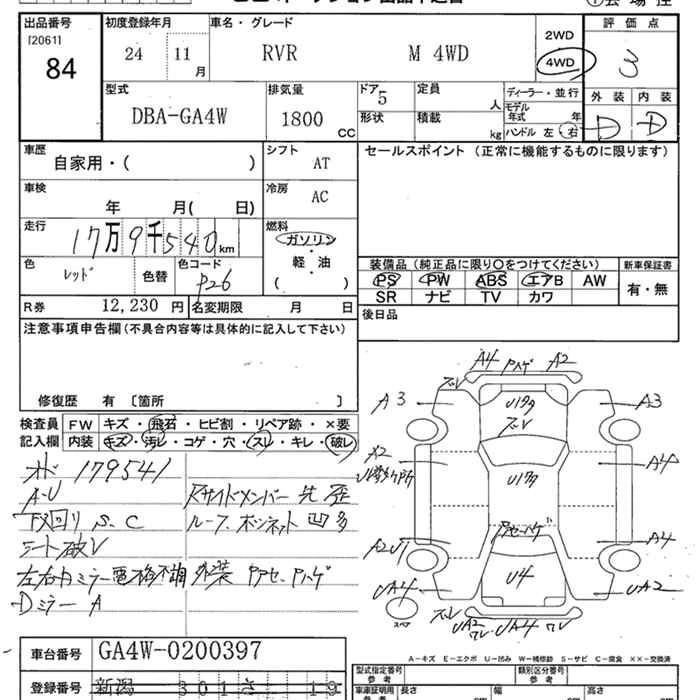 出品番号 初度登録年月 車名・グレード 2WD 評価点
[2061] 84 24 11月 RVR M 4WD 4WD 3
型式 排気量 ドア 5 定員 人 ディーラー・並行 外装 内装
DBA-GA4W 1800 CC 形状 積載 kg モデル年式 年 D D
ハンドル 左・右
車歴 自家用・( ) シフト AT セールスポイント(正常に機能するものに限ります)
車検 年 月( 日) 冷房 AC
走行 17万9千540km 燃料 ガソリン・軽・油 ( )
色 レッド 色替 色コード P26
装備品(純正品に限り〇をつけてください) 新車保証書
PS PW ABS エアB AW 有・無
SR ナビ TV カワ
R券 12,230円 名変期限 月 日 後日品
注意事項申告欄(不具合内容等は具体的に記入して下さい)
修復歴 有 [箇所 ]
検査員記入欄 FW キズ・飛石・ヒビ割・リペア跡・×要
内装 キズ・汚レ・コゲ・穴・スレ・キレ・破レ
オド 179541
A-U Rサイドメンバー先歪
下回り S、C ルーフ、ボンネット凹多
シート破レ
外装 Pアセ、Pハゲ
Dミラー A
A4 Pハゲ A2
ズレ
A3 A3
ズレ
A4
Pアセ、ハゲ
A2U1 A4
UA4 U4 UA2
スペア ズレ UA2 ワレ UA4 ワレ
A-キズ E-エクボ U-凹み W-補修跡 S-サビ C-腐食 ××-交換済
車台番号 GA4W-0200397
型式指定番号 参考 類別区分番号 参考
登録番号 新潟 301 さ 19
車庫証明用 参考 長さ 幅 高さ